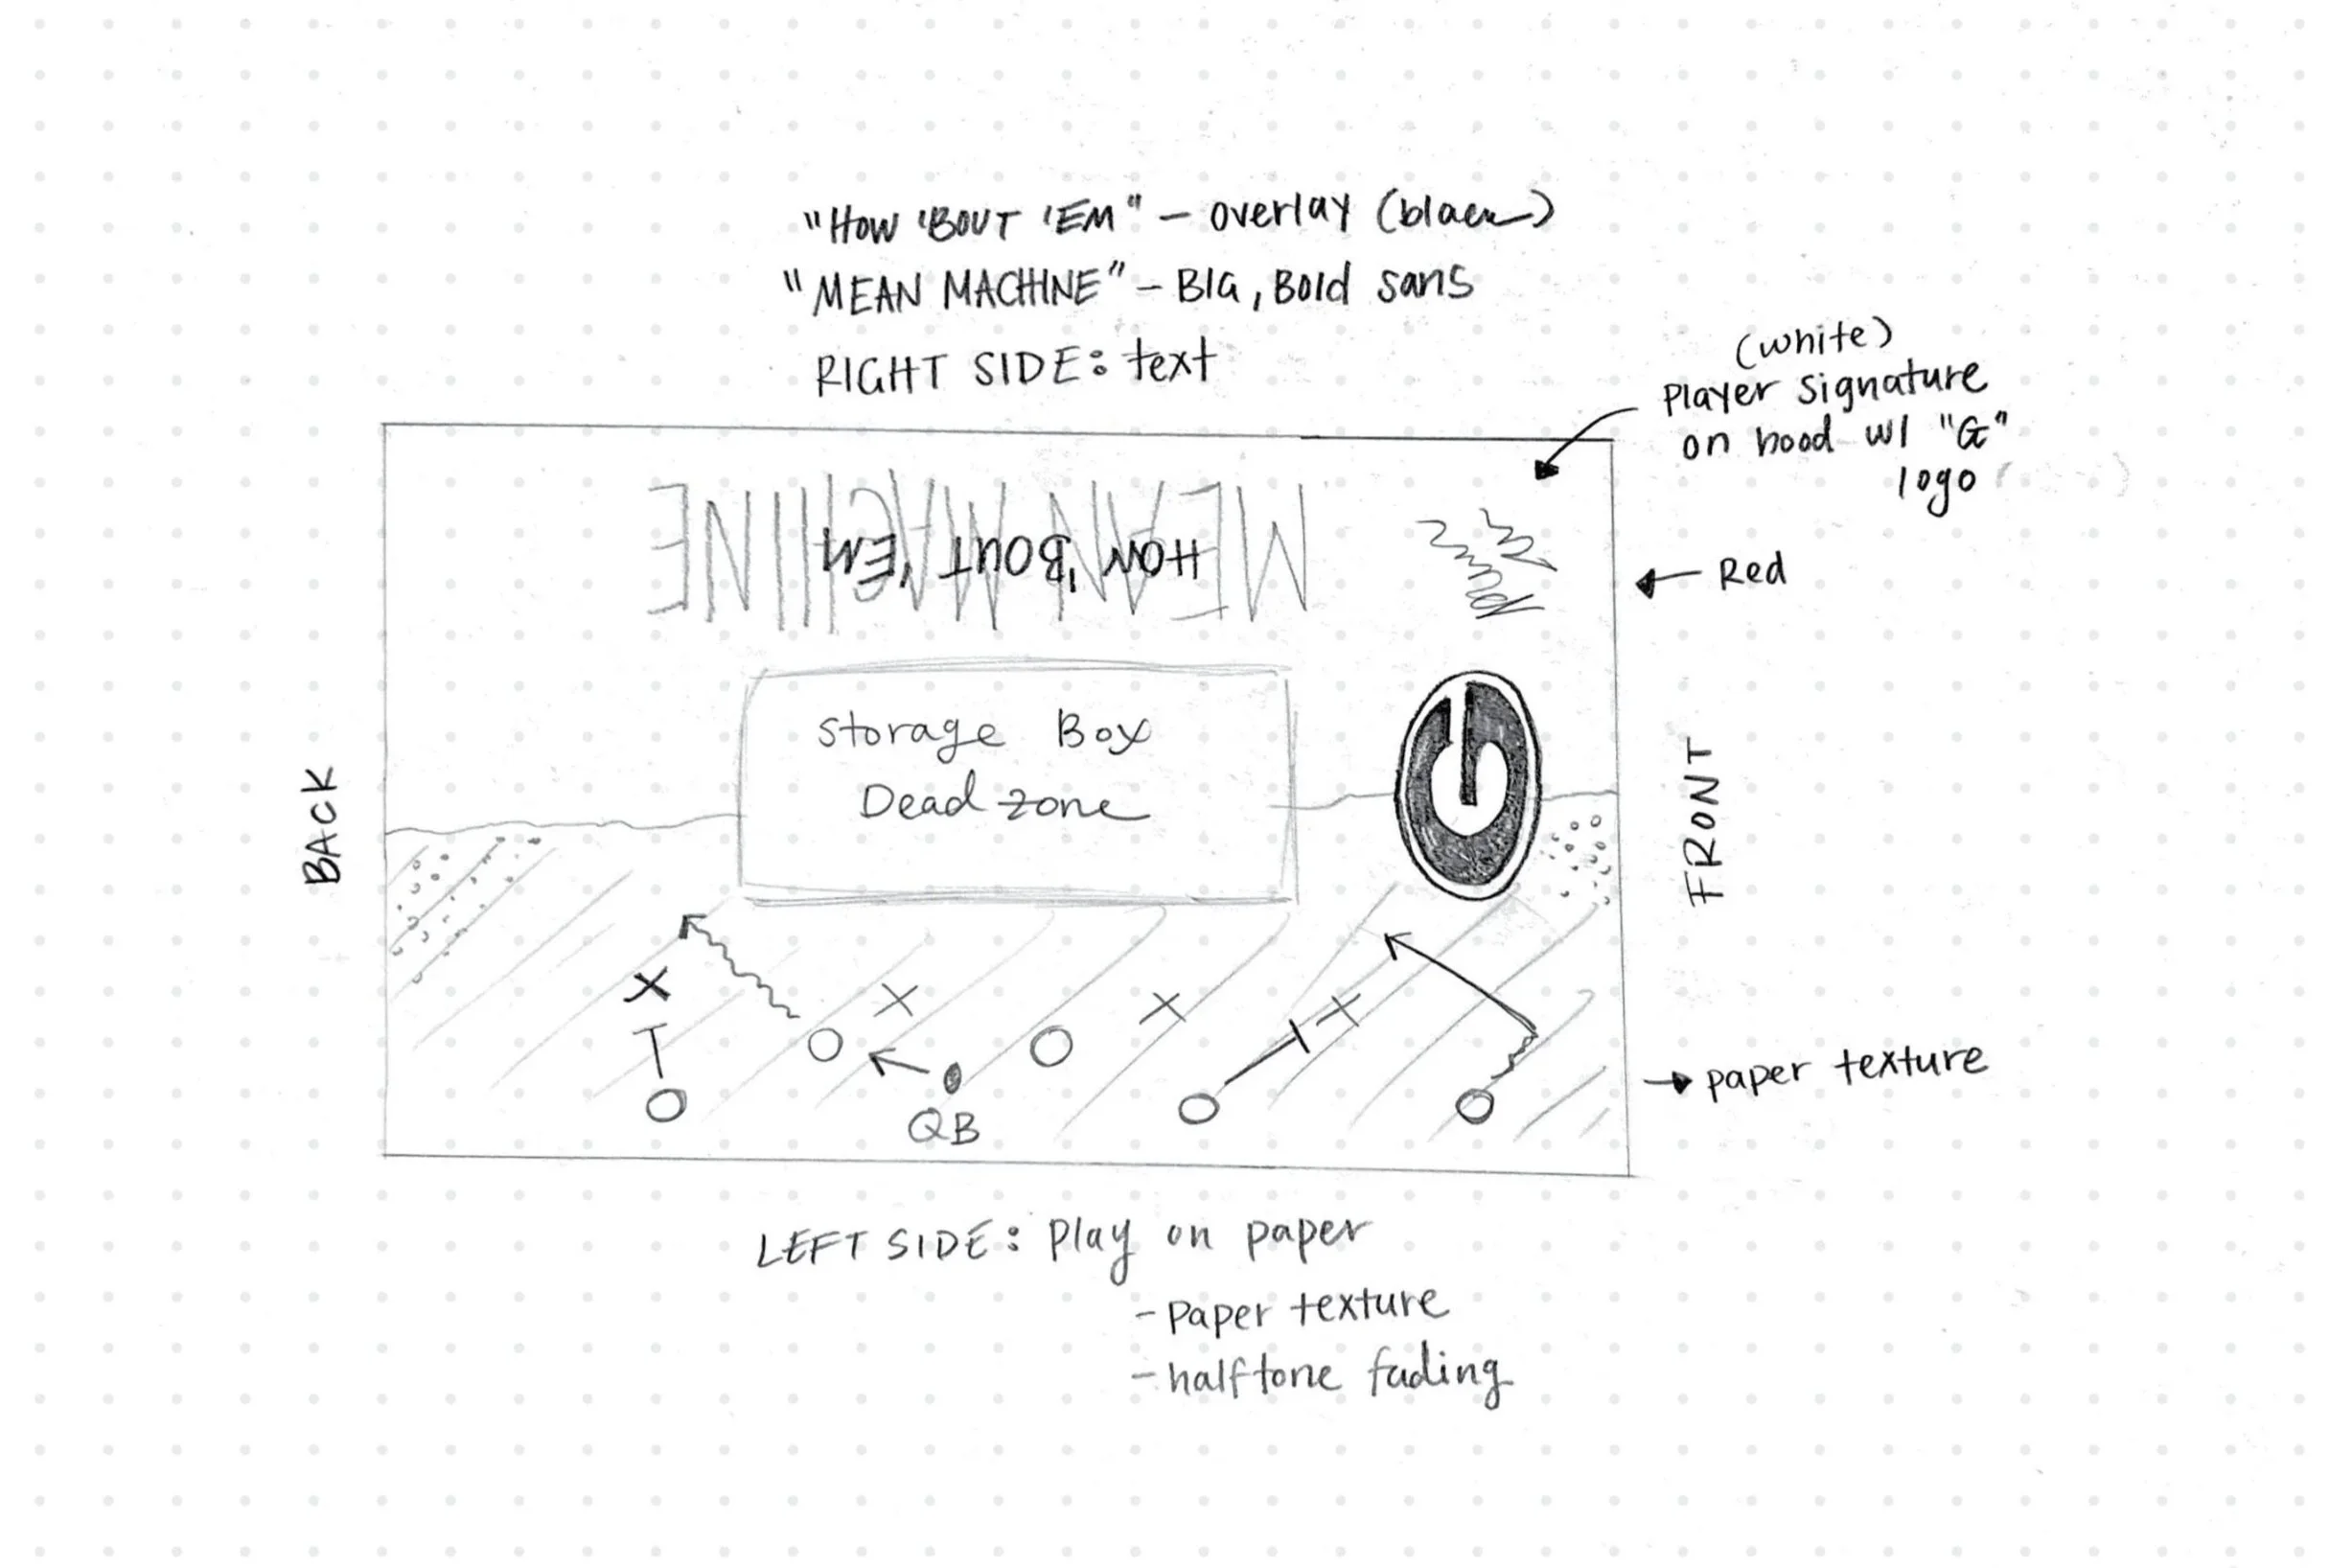 "HOW 'BOUT 'EM" – overlay (black)
"MEAN MACHINE" – BIG, Bold sans
RIGHT SIDE: text
(white)
Player signature
on hood w/ "G"
logo
MEAN MACHINE
HOW 'BOUT 'EM
Red
G
Storage Box
Dead zone
BACK
FRONT
X
X
X
X
O
O
O
O
O
QB
paper texture
LEFT SIDE: Play on paper
- Paper texture
- halftone fading